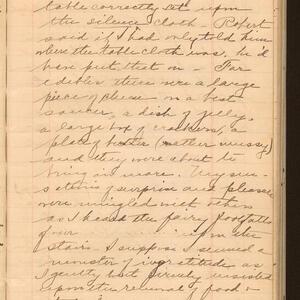 table correctly set upon
the silence cloth - Robert
said if I had only told him
where the table cloth was, he'd
have put that on - For
edibles there were a large
piece of cheese on a best
saucer, a dish of jelly,
a large box of crackers, a
plate of butter (rather mussy)
and they were about to
bring in more. My
of surprise and
were mingled with others
as I heard the fairy footfalls
of our upon the
stairs. I suppose I seemed a
monster of ingratitude as
I gently but firmly insisted
upon the removal of food